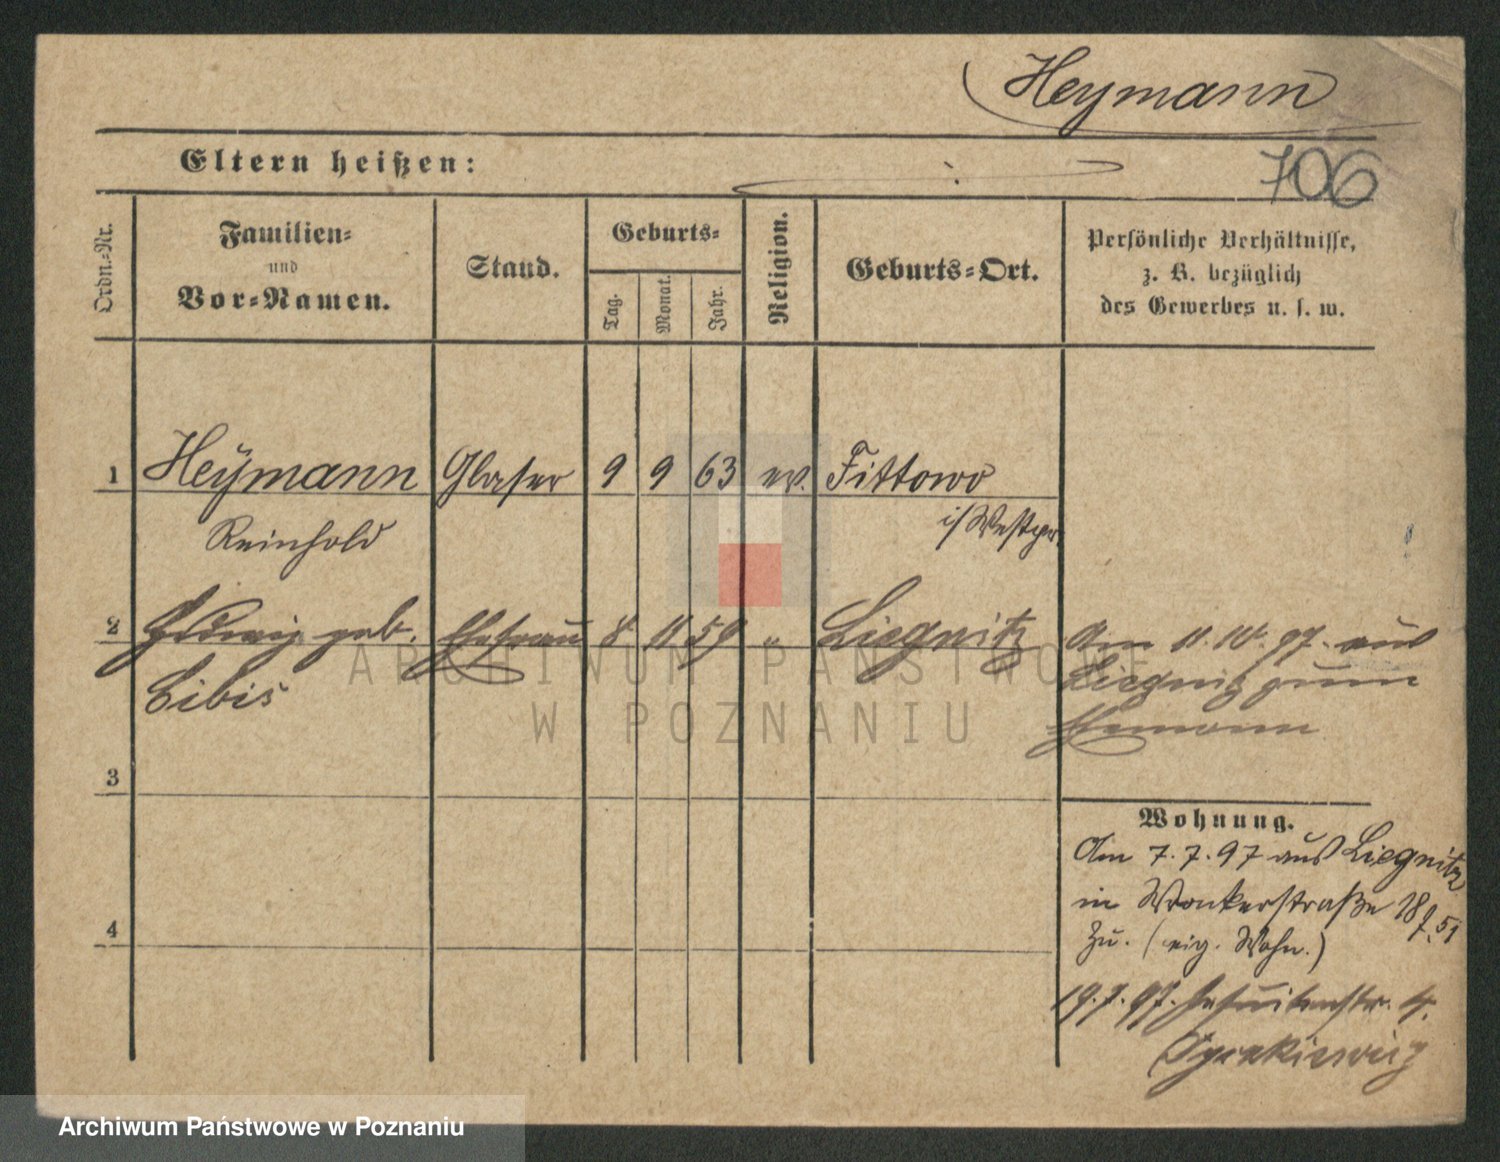 Heymann
706
Eltern heißen:
Ordn.-Nr.
Familien-
und
Vor-Namen.
Stand.
Geburts-
Tag.
Monat.
Jahr.
Religion.
Geburts-Ort.
Persönliche Verhältnisse,
z. B. bezüglich
des Gewerbes u. s. w.
1 Heymann Glaser 9 9 63 ev. Fittowo
Reinhold i/Westpr.
2 Hedwig geb. Ehefrau 8 11 59 " Liegnitz
Libis
Am 11.10.97. aus
Liegnitz zum
Ehemann
3
4
Wohnung.
Am 7.7.97 aus Liegnitz
in Wronkerstraße
Zu. (eig. Wohn.)
19.7.97. Jesuitenstr. 4.
ARCHIWUM PAŃSTWOWE
W POZNANIU
Archiwum Państwowe w Poznaniu